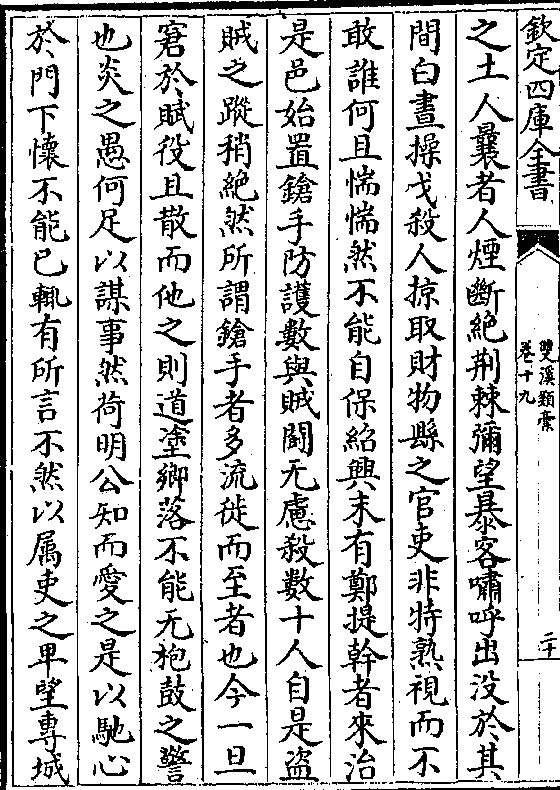 欽定四庫全書
雙溪類槀
卷十九
二十
之土人曩者人煙斷絶荆棘彌望暴客嘯呼出没於其
間白晝操戈殺人掠取財物縣之官吏非特熟視而不
敢誰何且惴惴然不能自保紹興末有鄭提幹者來治
是邑始置鎗手防護數與賊鬭无慮殺数十人自是盗
賊之蹤稍絶然所謂鎗手者多流徙而至者也今一旦
窘於賦役且散而他之則道塗鄉落不能无枹鼓之警
也炎之愚何足以謀事然荷明公知而愛之是以馳心
於門下懐不能已輒有所言不然以属吏之卑望專城